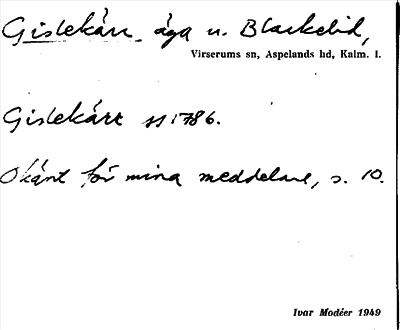 Gislekärr, äga u. Blackelid,
Virserums sn, Aspelands hd, Kalm. l.
Gislekärr js 1786.
Okänt för mina meddelare, s. 10.
Ivar Modéer 1949